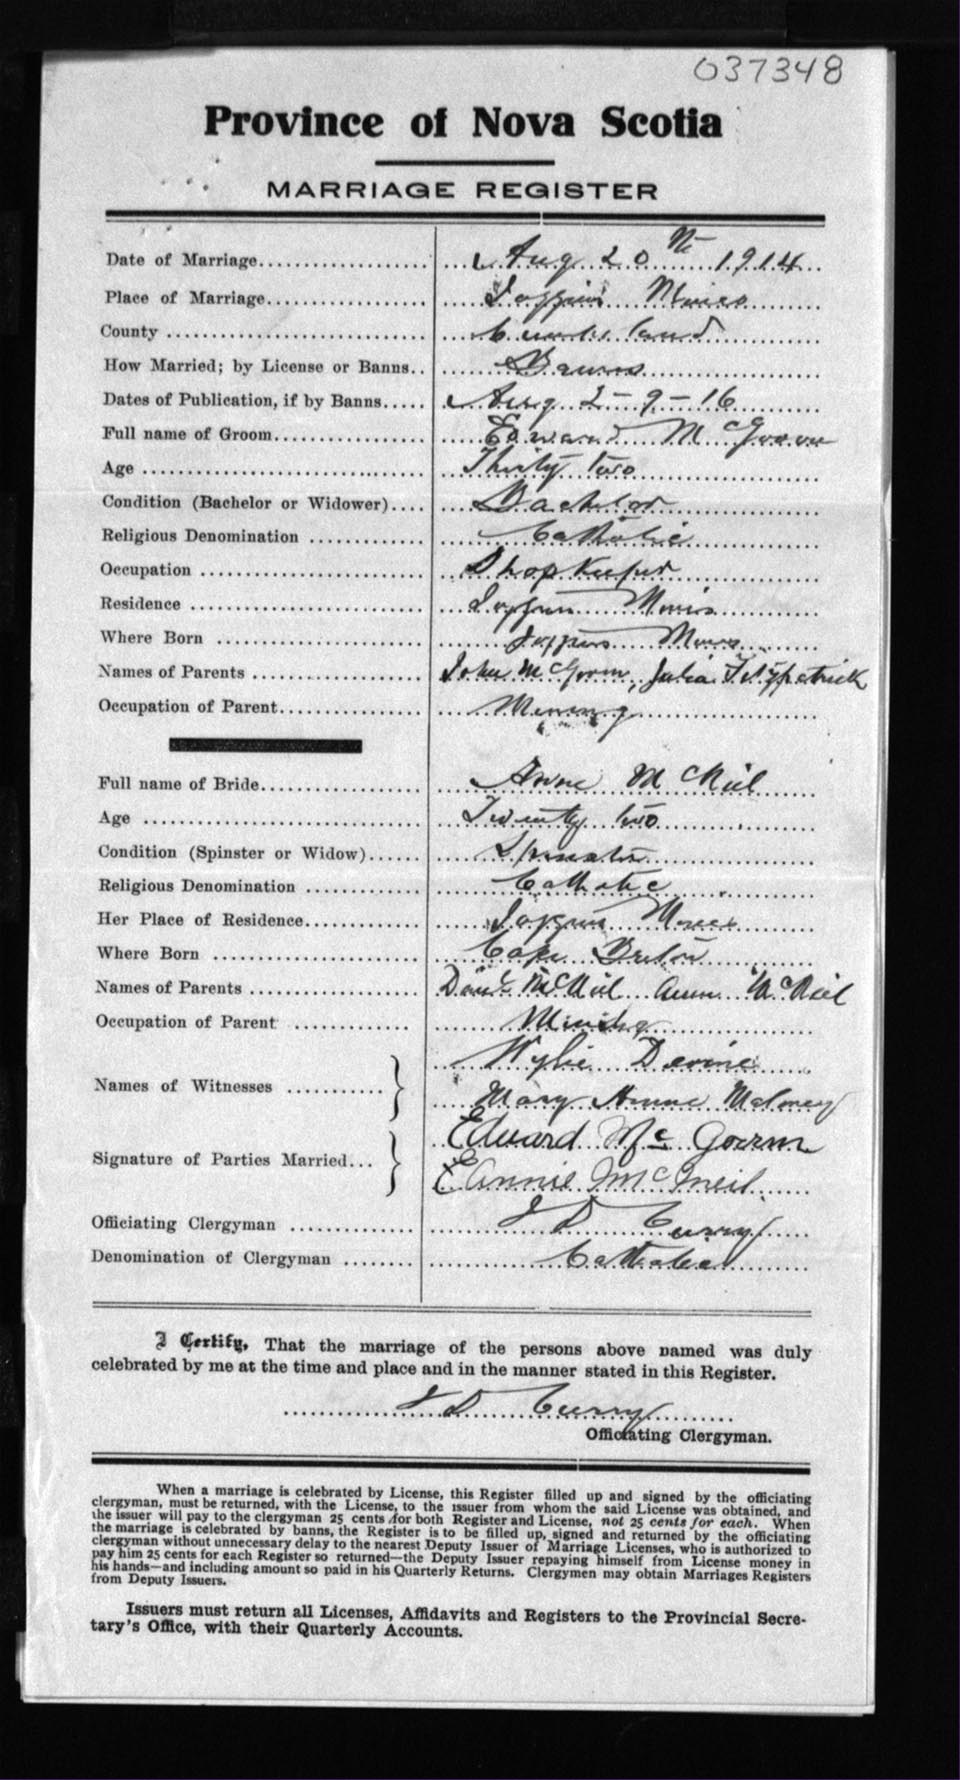 037348
Province of Nova Scotia
MARRIAGE REGISTER
Date of Marriage Aug 20th 1914
Place of Marriage Joggins Mines
County Cumberland
How Married; by License or Banns Banns
Dates of Publication, if by Banns Aug 2-9-16
Full name of Groom Edward McGorm
Age Thirty two
Condition (Bachelor or Widower) Bachelor
Religious Denomination Catholic
Occupation Shop Keeper
Residence Joggins Mines
Where Born Joggins Mines
Names of Parents John McGorm, Julia Fitzpatrick
Occupation of Parent Mining
Full name of Bride Anne McNeil
Age Twenty two
Condition (Spinster or Widow) Spinster
Religious Denomination Catholic
Her Place of Residence Joggins Mines
Where Born Cape Breton
Names of Parents Danl McNeil Annie McNeil
Occupation of Parent Mining
Wylie Devine
Names of Witnesses
Mary Anne Maloney
Edward Mc Gorm
Signature of Parties Married
Annie McNeil
Officiating Clergyman J D Curry
Denomination of Clergyman Catholic
I Certify, That the marriage of the persons above named was duly
celebrated by me at the time and place and in the manner stated in this Register.
J D Curry
Officiating Clergyman.
When a marriage is celebrated by License, this Register filled up and signed by the officiating
clergyman, must be returned, with the License, to the issuer from whom the said License was obtained, and
the issuer will pay to the clergyman 25 cents for both Register and License, not 25 cents for each. When
the marriage is celebrated by banns, the Register is to be filled up, signed and returned by the officiating
clergyman without unnecessary delay to the nearest Deputy Issuer of Marriage Licenses, who is authorized to
pay him 25 cents for each Register so returned—the Deputy Issuer repaying himself from License money in
his hands—and including amount so paid in his Quarterly Returns. Clergymen may obtain Marriages Registers
from Deputy Issuers.
Issuers must return all Licenses, Affidavits and Registers to the Provincial Secre-
tary's Office, with their Quarterly Accounts.